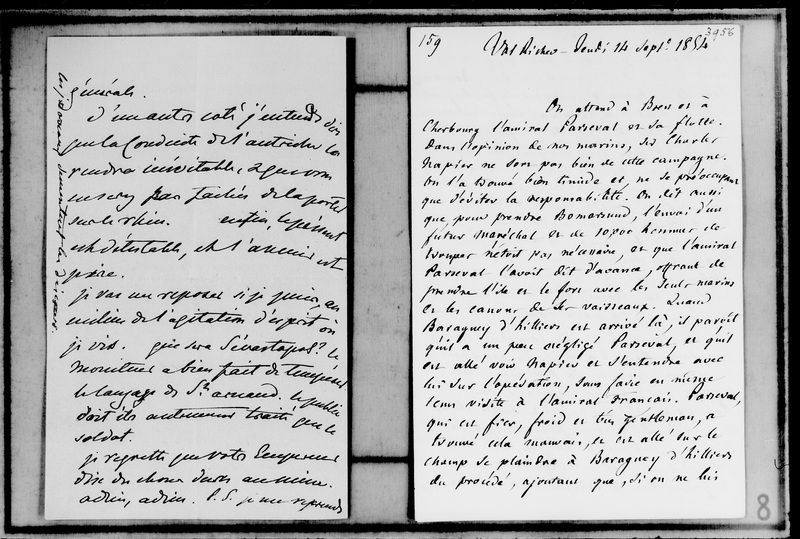 générale.
D'un autre coté j'entends dire
que la conduite de l'autriche la
rendra inévitable, et que vous
en serez
sur le rhin. enfin, le présent
est détestable, et l'avenir est
pire.
je vais me reposer si je puis, au
milieu de l'agitation d'esprit où
je vis. que sera Sévastopol ? le
moniteur a bien fait de tempérer
le langage de St arnaud. le public
doit être autrement traité que le
soldat.
je regrette que votre Empereur
dise des choses dures au mien.
adieu, adieu. P. S. je me reprends
159
3956
Val Richer - Jeudi 14 Septe 1854
On attend à Brest et à
Cherbourg l'amiral Parseval et sa flotte.
Dans l'opinion de nos marins, Sir Charles
Napier ne sort pas bien de cette campagne.
On l'a trouvé bien timide et ne se préoccupant
que d'éviter la responsabilité. On dit aussi
que, pour prendre Bomarsund, l'envoi d'un
futur maréchal et de 10,000 hommes de
troupes n'étoit pas nécessaire, et que l'amiral
Parseval l'avoit dit d'avance, offrant de
prendre l'île et le fort avec les seuls marins
et les canons de ses vaisseaux. Quand
Baraguey d'hilliers est arrivé là, il paroît
qu'il a un peu négligé Parseval, et qu'il
est allé voir Napier et s'entendre avec
lui sur l'opération, sans faire en même
tems visite à l'amiral Français. Parseval,
qui est fier, froid et très gentleman, a
trouvé cela mauvais, et est allé sur le
champ se plaindre à Baraguey d'hilliers
du procédé, ajoutant que, si on ne lui
8